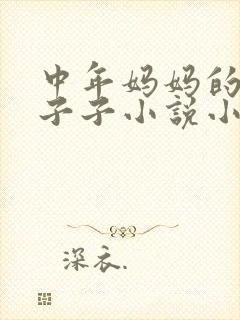 中年妈妈的
子子小说小
深衣.